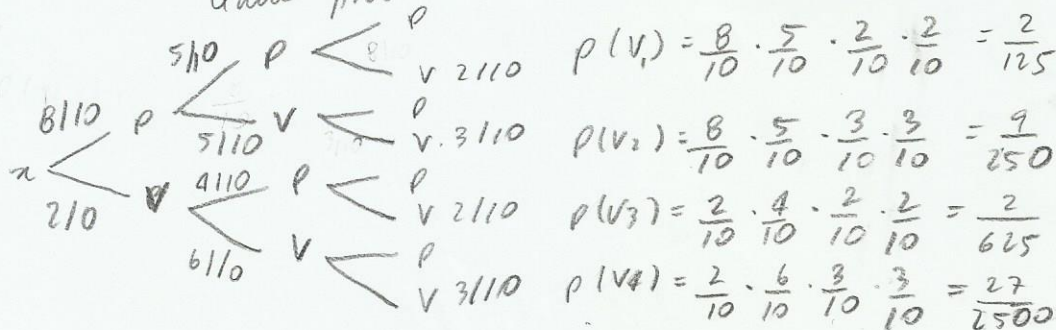 P
5/10 P
V 2/10 P(V1) = 8/10 · 5/10 · 2/10 · 2/10 = 2/125
8/10 P
P
5/10 V
V. 3/10 P(V2) = 8/10 · 5/10 · 3/10 · 3/10 = 9/250
x
2/0 V 4/10 P
P
V 2/10 P(V3) = 2/10 · 4/10 · 2/10 · 2/10 = 2/625
6/10 V
P
V 3/10 P(V4) = 2/10 · 6/10 · 3/10 · 3/10 = 27/2500